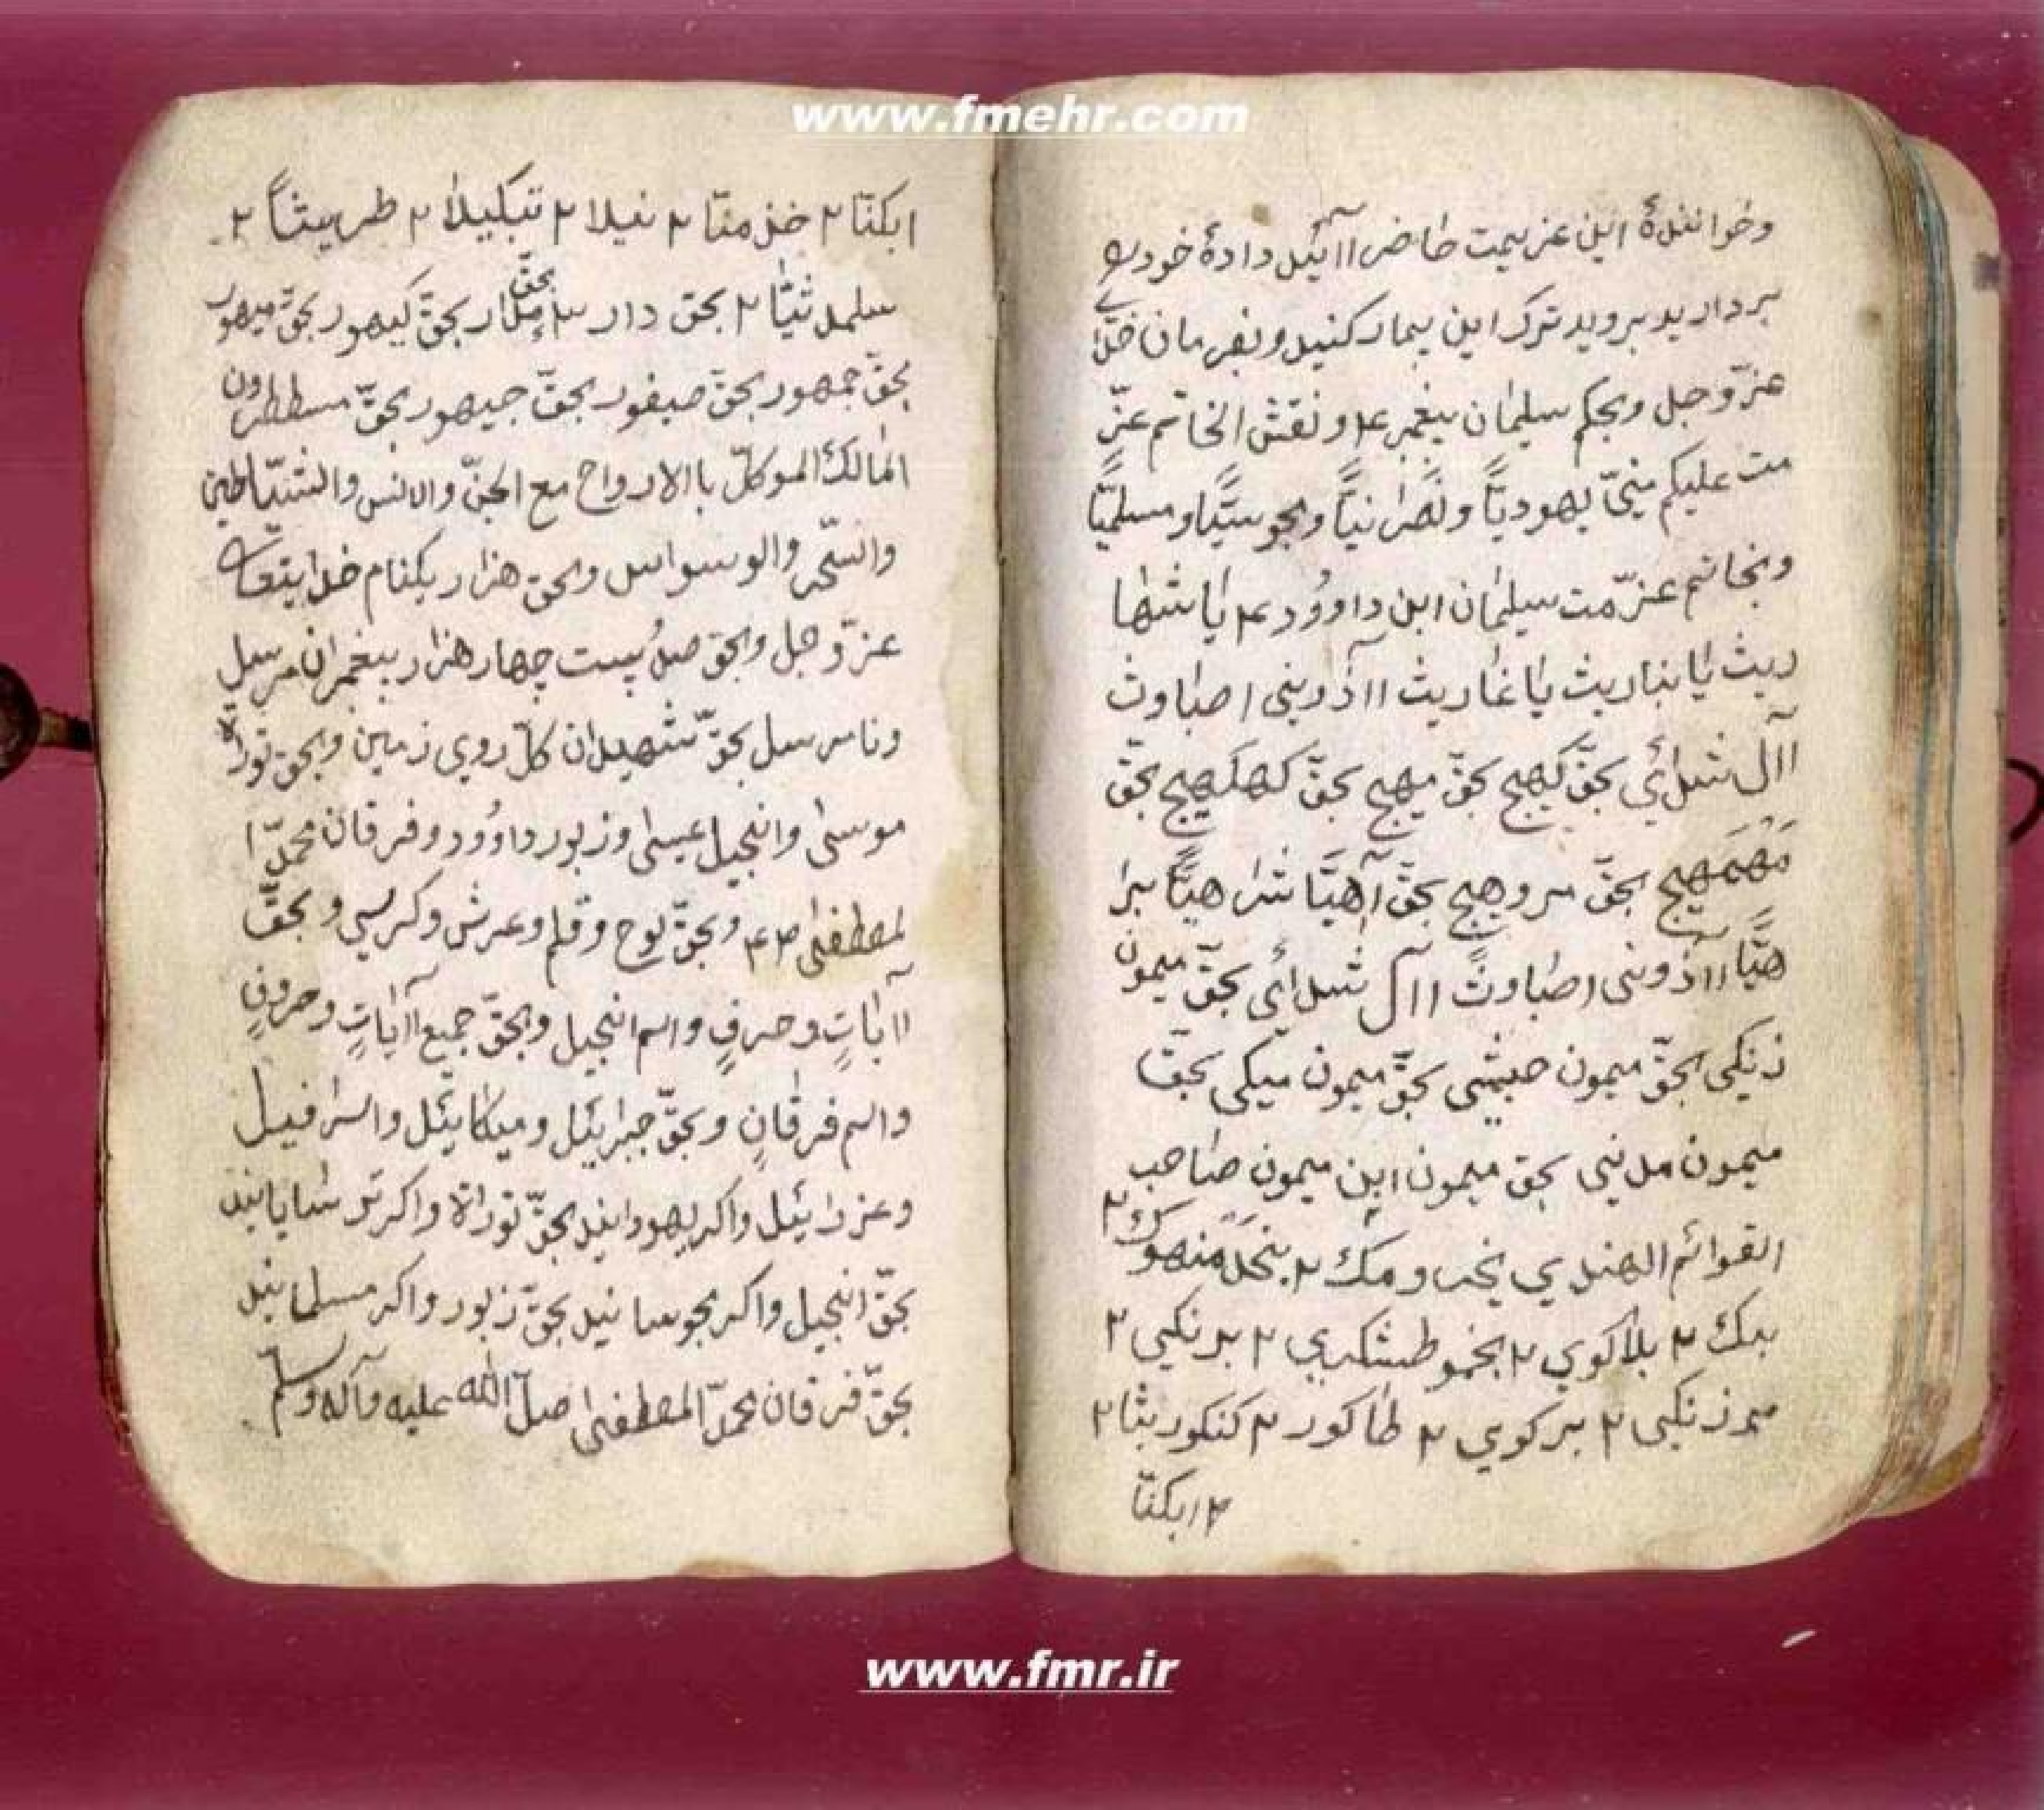 www.fmehr.com
وخوانندهٔ این عزیمت حاضر اآئید دادهٔ خودرا
بردارید بروید ترک این بیمار کنید وبفرمان خدا
عزّوجل وبحکم سلیمان پیغمبر ع ونقش الخاتم عزّ
مت علیکم منجیّ یهودیًّا ونصرانیًّا ومجوسیًّا ومسلمیًّا
وبخاتم عزّمت سیلمان ابن داوود ع یا شها
ریث یا بناریث یا غاریث ااذرینی اصباوث
اآل شدائي بحقّ کهیج بحقّ میهیج بحقّ کهکهیج بحقّ
مهمهیج بحقّ بروهیج بحقّ آهیًّا شرا هیًّا برا
هیًّا ااذونی اصباوثً اآل شدائی بحقّ میمون
زنکی بحقّ میمون حبشی بحقّ میمون میکی بحقّ
میمون مدینی بحق میمون ابن میمون صاحب
القوائم الهندي ومک ۲
ببک ۲ بلاکوي ۲ ۲ برنکیی ۲
مرزنکیی ۲ برکوي ۲ طاکور ۲ کنکوریثا ۲
۲ ابکنّا
ابکنّا ۲ خذ منّا ۲ نیلا ۲ تبکیلا ۲ طریثاً ۲
سلمد ثیثا ۲ بحق دار بحقّ بحقّ کیهور بحقّ میهور
بحقّ جمهور بحقّ صیفور بحقّ جیهور بحقّ مسططرون
المالک الموکلّ باالارواح مع الجنّ والانس والشّیاطین
والسّحر والوسواس وبحق هزار ریکنام خدایتعا
عزّوجل وبحق صدُبیست چهار هزار پیغمبران مرسل
ونامرسل بحقّ شهیدان کلّ روي زمین وبحق توراة
موسیٰ وانجیل عیسیٰ وزبور داوُود وفرقان محمّد ا
لمصطفیٰ وبحقّ لوح وقلم وعرش وکرسي وبحقّ
اآیاتٍ وحرفٍ واسم انجیل وبحقّ جمیع اآیاتٍ وحروفٍ
واسم فرقانٍ وبحقّ جبرایئل ومیکایئل واسرافیل
وعزرایئل واکر یهودانید بحقّ توراة واکر ترسایانید
بحقّ انجیل واکر مجوسانید بحقّ زبور واکر مسلمانید
بحقّ فرقان محمّد المصطفیٰ صلّ الله علیه وآله وسلّم
www.fmr.ir